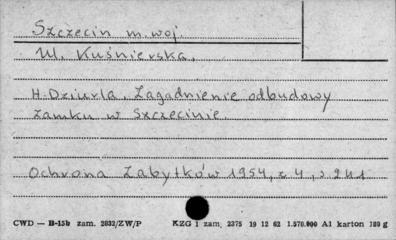 Szczecin m. woj.
Ul. Kuśnierska.
H. Dziurla. Zagadnienie odbudowy
zamku w Szczecinie.
Ochrona Zabytków 1954, z 4, s. 241
CWD — B-15b zam. 2832/ZW/P KZG 1 zam, 2375 19 12 62 1.570.000 A1 karton 180 g